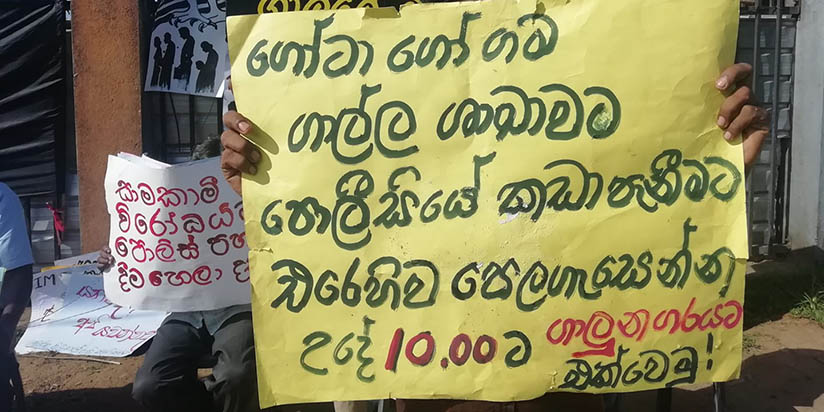 ගෝටා ගෝ ගම
ගාල්ල ශාඛාවට
පොලීසියේ කඩාපැනීමට
එරෙහිව පෙලගැසෙන්න
උදේ 10.00ට ගාලුනගරයට
එක්වෙමු!
සමකාමී
විරෝධය
පොලිස් පහ
දීම හෙලා ද